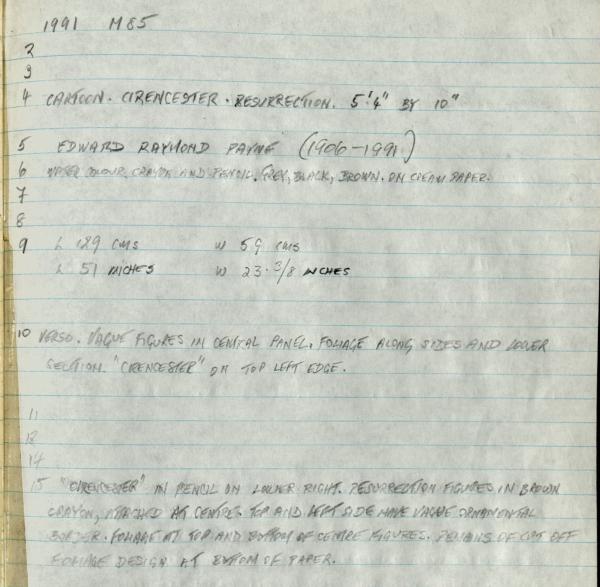 1991 M85
2
3
4 CARTOON. CIRENCESTER. RESURRECTION. 5'4" BY 10"
5 EDWARD RAYMOND PAYNE (1906-1991)
6 WATER COLOUR, CRAYON AND PENCIL. GREY, BLACK, BROWN. ON CREAM PAPER.
7
8
9 L 129 CMS W 59 CMS
L 51 INCHES W 23.3/8 INCHES
10 VERSO. VAGUE FIGURES IN CENTRAL PANEL. FOLIAGE ALONG SIDES AND LOWER
SECTION. "CIRENCESTER" ON TOP LEFT EDGE.
11
12
14
15 "CIRENCESTER" IN PENCIL ON LOWER RIGHT. RESURRECTION FIGURES IN BROWN
CRAYON, ATTACHED AT CENTRE. TOP AND LEFT SIDE HAVE VAGUE ORNAMENTAL
BORDER. FOLIAGE AT TOP AND BOTTOM OF CENTRE FIGURES. REMAINS OF CUT OFF
FOLIAGE DESIGN AT BOTTOM OF PAPER.